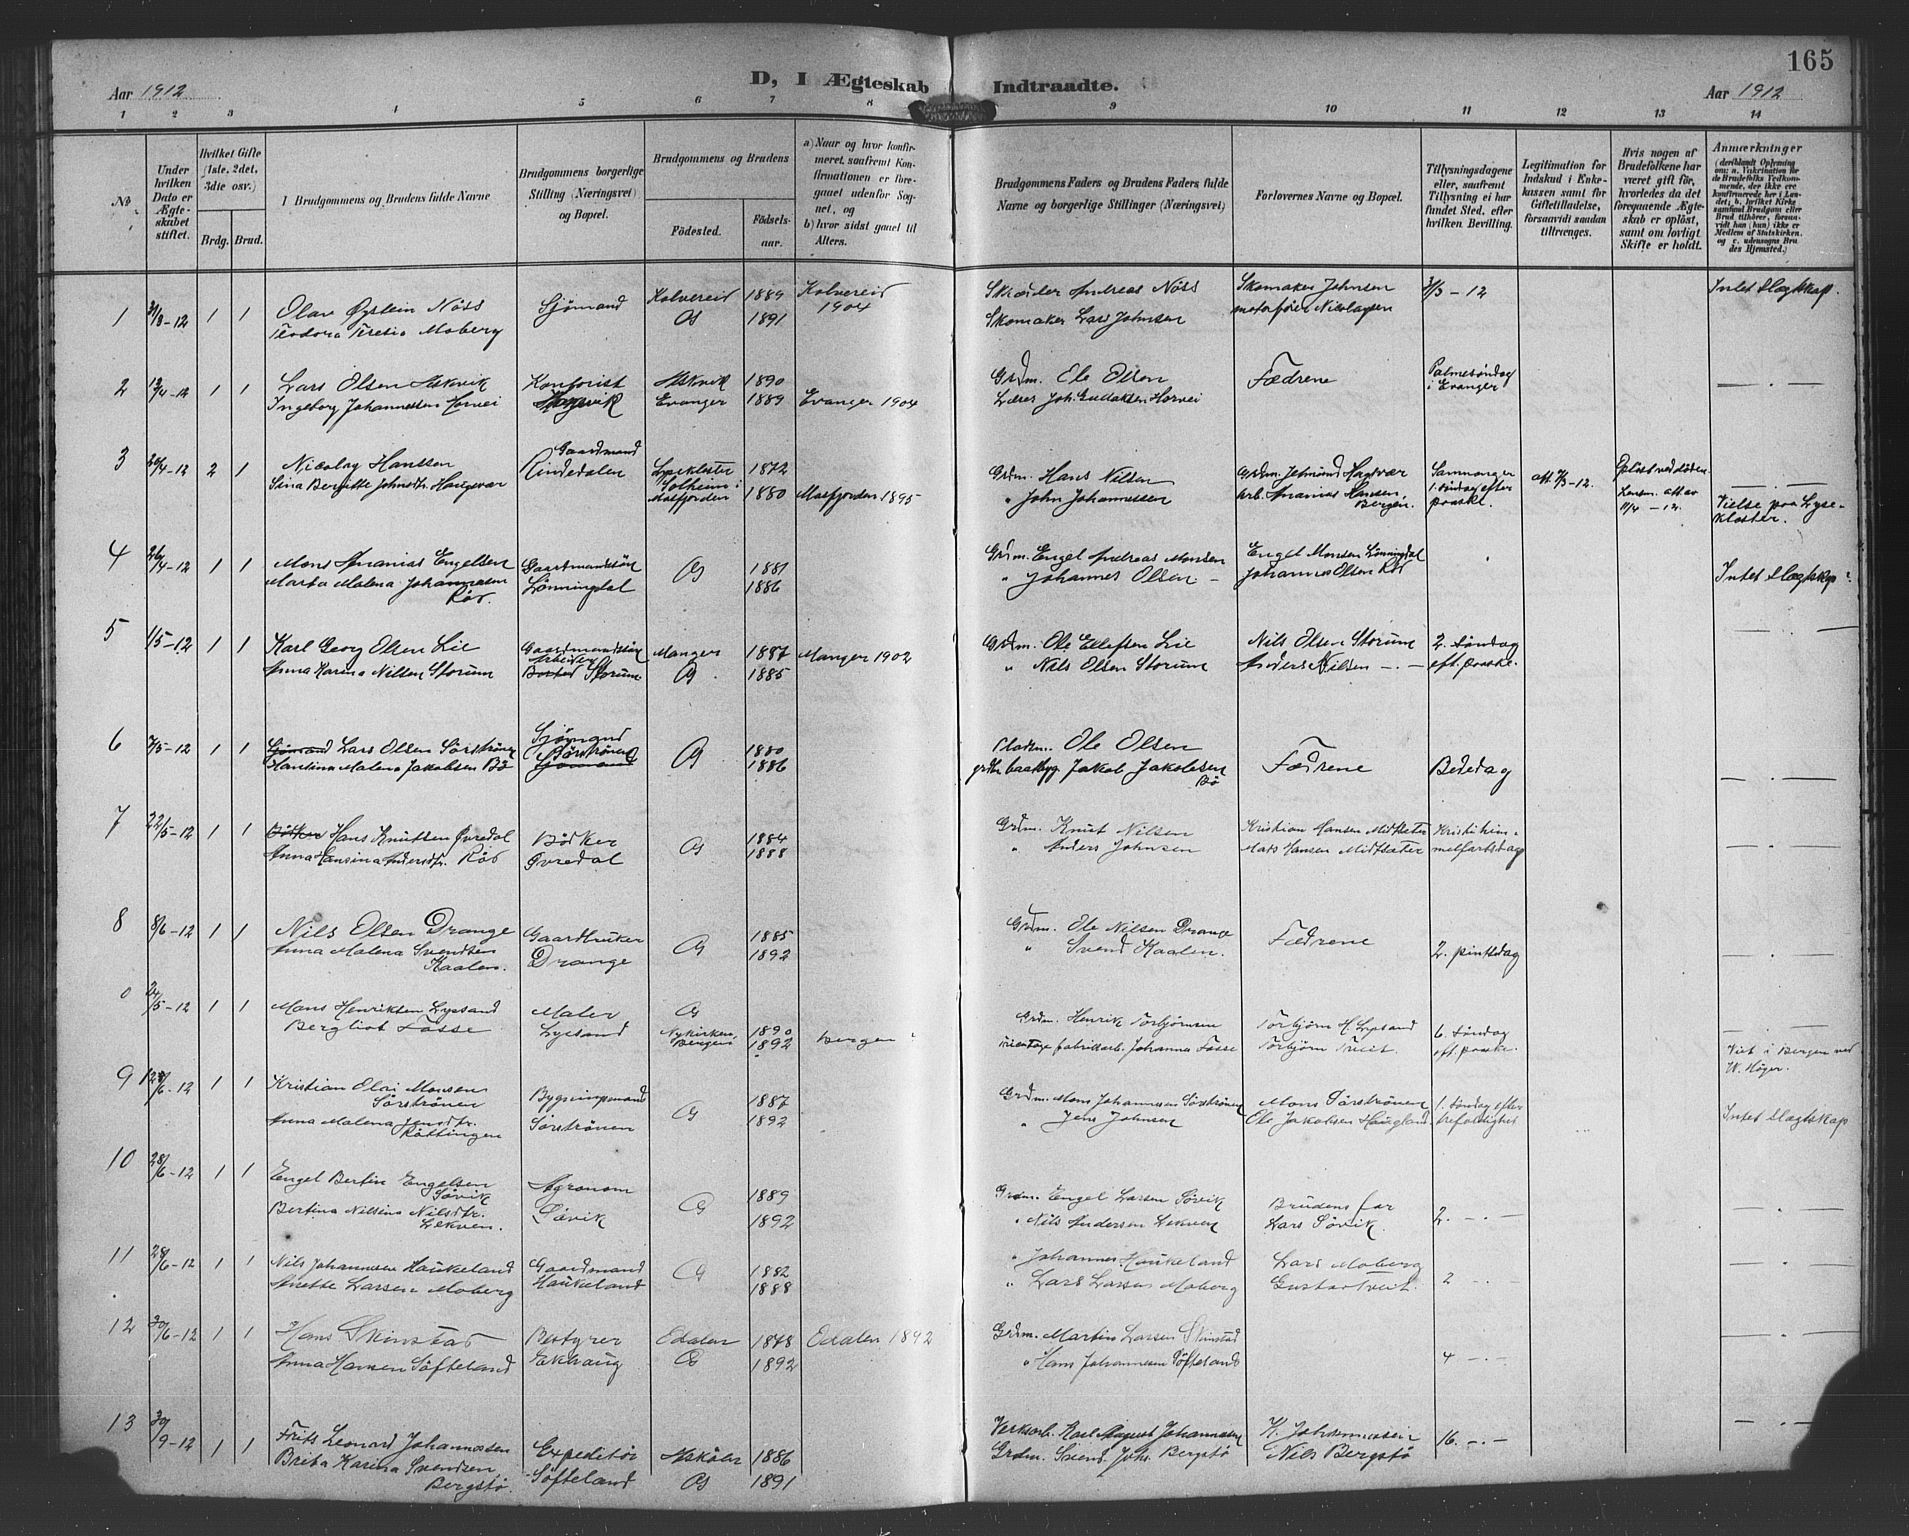 165
D, I Ægteskab Indtraadte.
Aar 1912
Aar 1912
1 2 3 4 5 6 7 8 9 10 11 12 13 14
No
Under hvilken Dato er Ægteskabet stiftet.
Hvilket Gifte (1ste, 2det, 3die osv.)
Brdg. Brud.
Brudgommens og Brudens fulde Navne
Brudgommens borgerlige Stilling (Næringsvei) og Bopæl.
Brudgommens og Brudens
Fødested. Fødselsaar.
a) Naar og hvor konfirmeret, saafremt Konfirmationen er foregaaet udenfor Sognet, og
b) hvor sidst gaaet til Alters.
Brudgommens Faders og Brudens Faders fulde Navne og borgerlige Stillinger (Næringsvei)
Forlovernes Navne og Bopæl.
Tillysningsdagene eller, saafremt Tillysning ei har fundet Sted, efter hvilken Bevilling.
Legitimation for Indskud i Enkekassen samt for Giftetilladelse, forsaavidt saadan tiltrænges.
Hvis nogen af Brudefolkene har været gift før, hvorledes da det foregaaende Ægteskab er opløst, samt om lovligt Skifte er holdt.
Anmærkninger
1 31/3-12 1 1 Olav Øystein Nöss Sjömand Kolvereid 1889 Kolvereid 1904 Skræder Andreas Nöss Skomaker Johnsen 3/3-12 Intet Slægtskap.
Teodora Teresia Moberg Os 1891 Skomaker Lars Johnsen motorfører Nicolaysen
2 13/4-12 1 1 Lars Olsen Askvik Kontorist Askvik 1890 Grdm. Ole Olsen Fædrene Palmesöndag i Evanger
Ingeborg Johannessen Horvei Evanger 1889 Evanger 1904 Lærer Joh. Gudaksen Horvei
3 20/4-12 2 1 Nicolay Hanssen Gaardmand Rindedalen Lysekloster 1872 Grdm. Hans Nilsen
Sina Bergitte Johnsdtr. Haugsvær Solheim i Masfjorden 1880 Masfjorden 1895 " John Johannessen Arb. Ananias Hansen, Bergen. Samnanger 1. söndag efter paaske att. 7/3-12. Oplöst ved döden. 11/4-12. Vielse paa Lysekloster.
4 26/4-12 1 1 Mons Ananias Engelsen Gaardmandssön Os 1881 Grdm. Engel Andreas Monsen Engel Monsen Lönningdal
Marta Malena Johannessen Röd. Lönningdal 1886 " Johannes Olsen Johannes Olsen Röd Intet Slægtskap
5 1/5-12 1 1 Karl Georg Olsen Lie Gaardmandssön Manger 1887 Manger 1902 Grdm. Ole Ellefsen Lie Nils Olsen Storum 2. söndag
Anna Karina Nilsen Storum Arbeider Storum Os 1885 " Nils Olsen Storum Anders Nilsen eft. paaske.
6 7/5-12 1 1 Sjömand Lars Olsen Sörströnen Sjömand Sörströnen Os 1880 Pladsm. Ole Olsen Fædrene Bededag
Hansina Malena Jakobsen Bö Sjömand 1886 Jakob Jakobsen Bö
7 22/5-12 1 1 Bödker Hans Knutsen Øvredal Bödker Os 1884 Grdm. Knut Nilsen Kristian Hansen Midtsæter Kristi himmelfartsdag
Anna Hansina Andersdtr. Röd Øvredal 1888 " Anders Johnsen Mads Hansen Midtsæter
8 8/6-12 1 1 Nils Olsen Drange Gaardbruker Os 1885 Grdm. Ole Nilsen Drange Fædrene 2. pintsedag
Anna Malena Svendsen Kaalen. Drange 1892 " Svend Kaalen.
0 24/5-12 1 1 Mons Henriksen Lysand Maler Os 1890 Grdm. Henrik Torbjörnsen Torbjörn H. Lysand 6. söndag
Bergliot Fosse Lysand Nykirken, Bergen 1892 Bergen fabrikarb. Johannes Fosse Torbjörn Tveit. eft. paaske. Viet i Bergen ved W. Höyer.
9 23/6-12 1 1 Kristian Olai Monsen Sörströnen Bygningsmand Os 1887 Grdm. Mons Johannessen Sörströnen Mons Sörströnen 1. söndag efter trefoldighet
Anna Malena Jensdtr. Röttingen Sörströnen 1892 " Jens Johnsen Ole Jakobsen Haugland Intet Slægtskap
10 28/6-12 1 1 Engel Bertin Engelsen Sövik Agronom Os 1889 Grdm. Engel Larsen Sövik Brudens far 2. - . -
Bertina Nilsina Nilsdtr. Lekven. Sövik 1892 " Nils Andersen Lekven Lars Sövik.
11 28/6-12 1 1 Nils Johannesen Haukeland Gaardmand Os 1882 " Johannes Haukeland Lars Moberg 2 - . -
Anette Larsen Moberg Haukeland 1888 " Lars Larsen Moberg Gustav Tveit.
12 30/6-12 1 1 Hans Skinstad Bestyrer Edalen 1878 Edalen 1892 Grdm. Martin Larsen Skinstad
Anna Hansen Söfteland Ekhaug Os 1892 " Hans Johannesen Söfteland 4 - . -
13 30/9-12 1 1 Frits Leonard Johannessen Expeditör Asköen 1886 Verksarb. Karl August Johannessen K. Johannessen 16. - . -
Brita Karina Svendsen Bergstö. Söfteland Os 1891 Grdm. Svend Joh. Bergstö Nils Bergstö